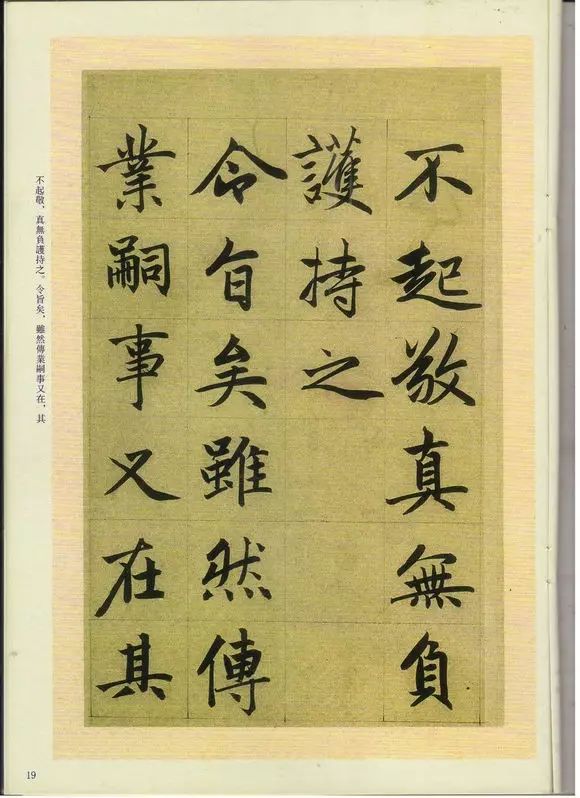 不起敬真無負
護持之
令旨矣雖然傳
業嗣事又在其
不起敬，真無負護持之。令旨矣，雖然傳業嗣事又在，其
19